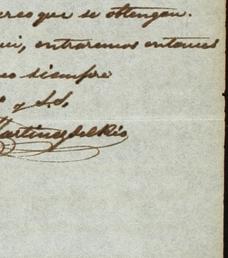 que se obtengan.
entraremos entonces
siempre
y S.S.
Martinez del Rio